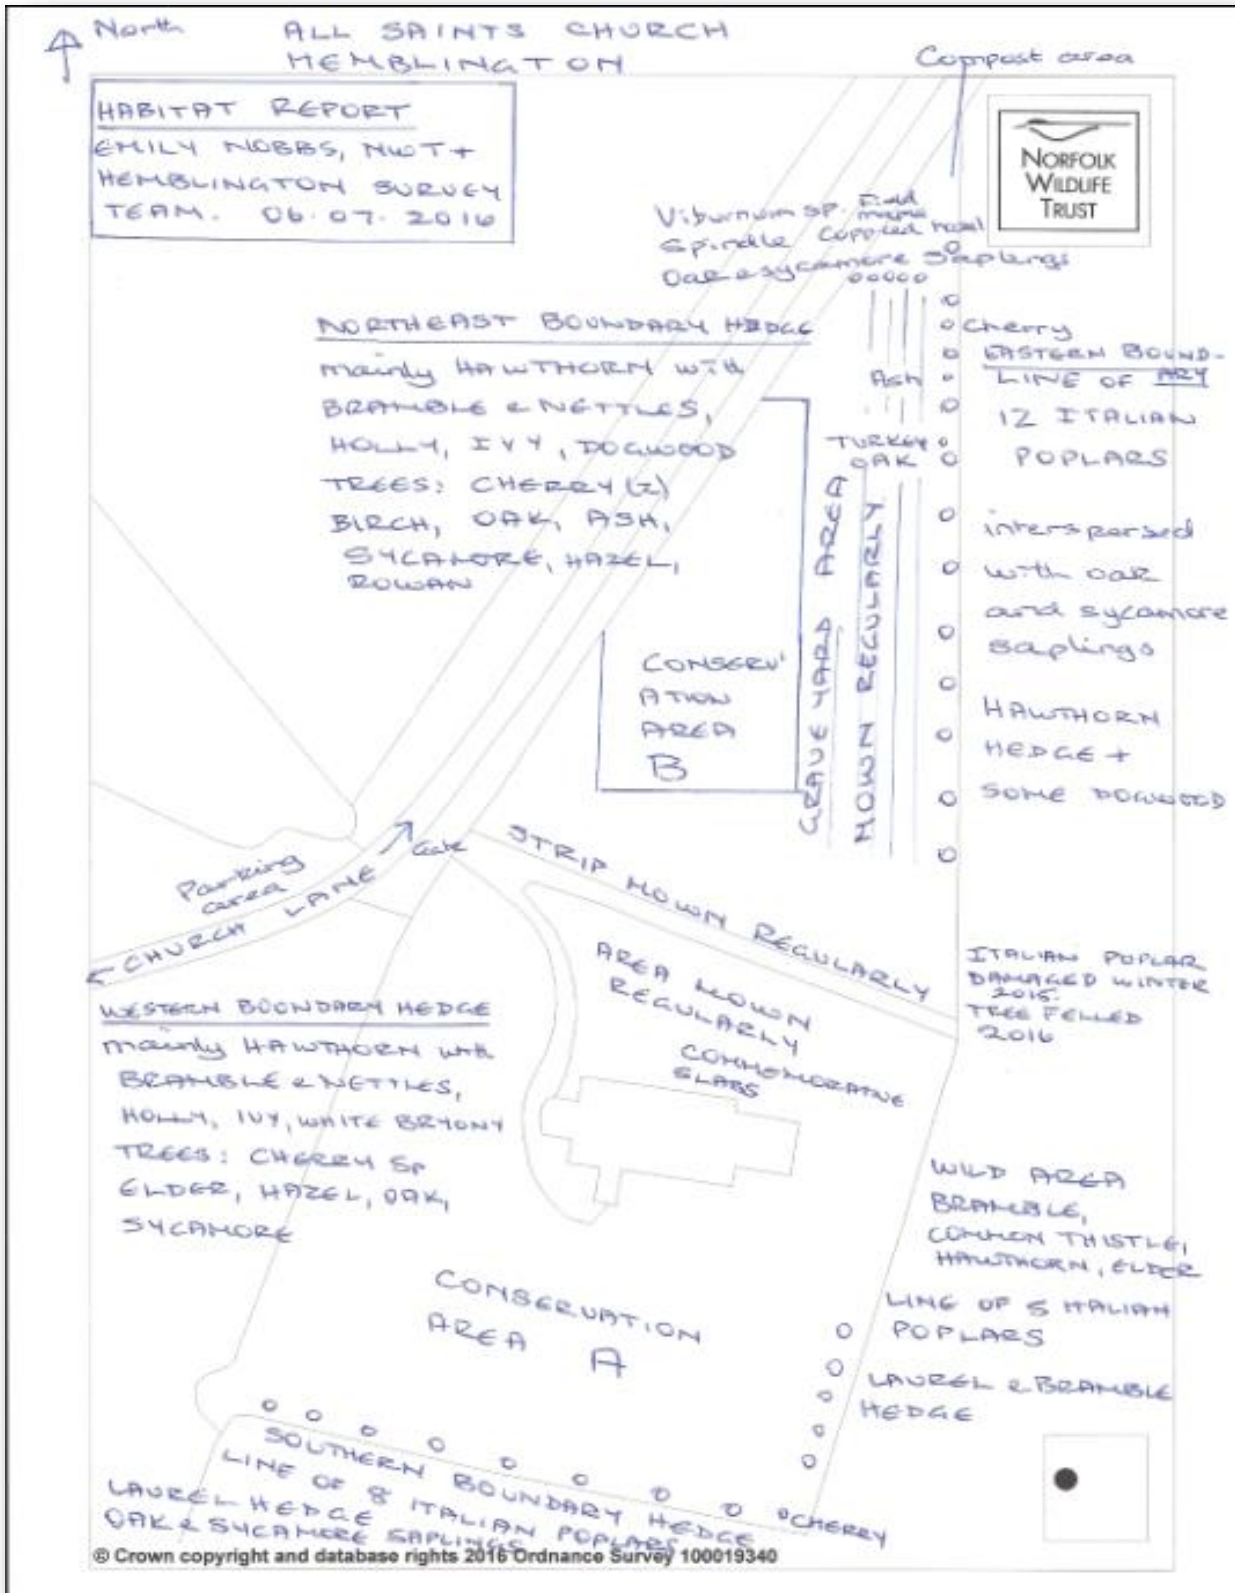 North
ALL SAINTS CHURCH
HEMBLINGTON
Compost area
HABITAT REPORT
EMILY NOBBS, NWT +
HEMBLINGTON SURVEY
TEAM. 06.07.2016
NORFOLK
WILDLIFE
TRUST
Viburnum sp. Field
maple
Spindle Coppiced hazel
Oak & sycamore saplings
NORTHEAST BOUNDARY HEDGE
mainly HAWTHORN with
BRAMBLE & NETTLES,
HOLLY, IVY, DOGWOOD
TREES: CHERRY (2)
BIRCH, OAK, ASH,
SYCAMORE, HAZEL,
ROWAN
Cherry
EASTERN BOUND-
ARY
LINE OF
12 ITALIAN
POPLARS
Ash
TURKEY
OAK
interspersed
with oak
and sycamore
saplings
HAWTHORN
HEDGE +
SOME DOGWOOD
CONSERV'
ATION
AREA
B
GRAVE YARD AREA
MOWN REGULARLY
Parking
area
Gate
CHURCH LANE
STRIP MOWN REGULARLY
AREA MOWN
REGULARLY
COMMEMORATIVE
SLABS
ITALIAN POPLAR
DAMAGED WINTER
2015.
TREE FELLED
2016
WESTERN BOUNDARY HEDGE
mainly HAWTHORN with
BRAMBLE & NETTLES,
HOLLY, IVY, WHITE BRYONY
TREES: CHERRY Sp
ELDER, HAZEL, OAK,
SYCAMORE
WILD AREA
BRAMBLE,
COMMON THISTLE,
HAWTHORN, ELDER
LINE OF 5 ITALIAN
POPLARS
LAUREL & BRAMBLE
HEDGE
CONSERVATION
AREA A
SOUTHERN BOUNDARY HEDGE
LINE OF 8 ITALIAN POPLARS
LAUREL HEDGE
OAK & SYCAMORE SAPLINGS
CHERRY
© Crown copyright and database rights 2016 Ordnance Survey 100019340